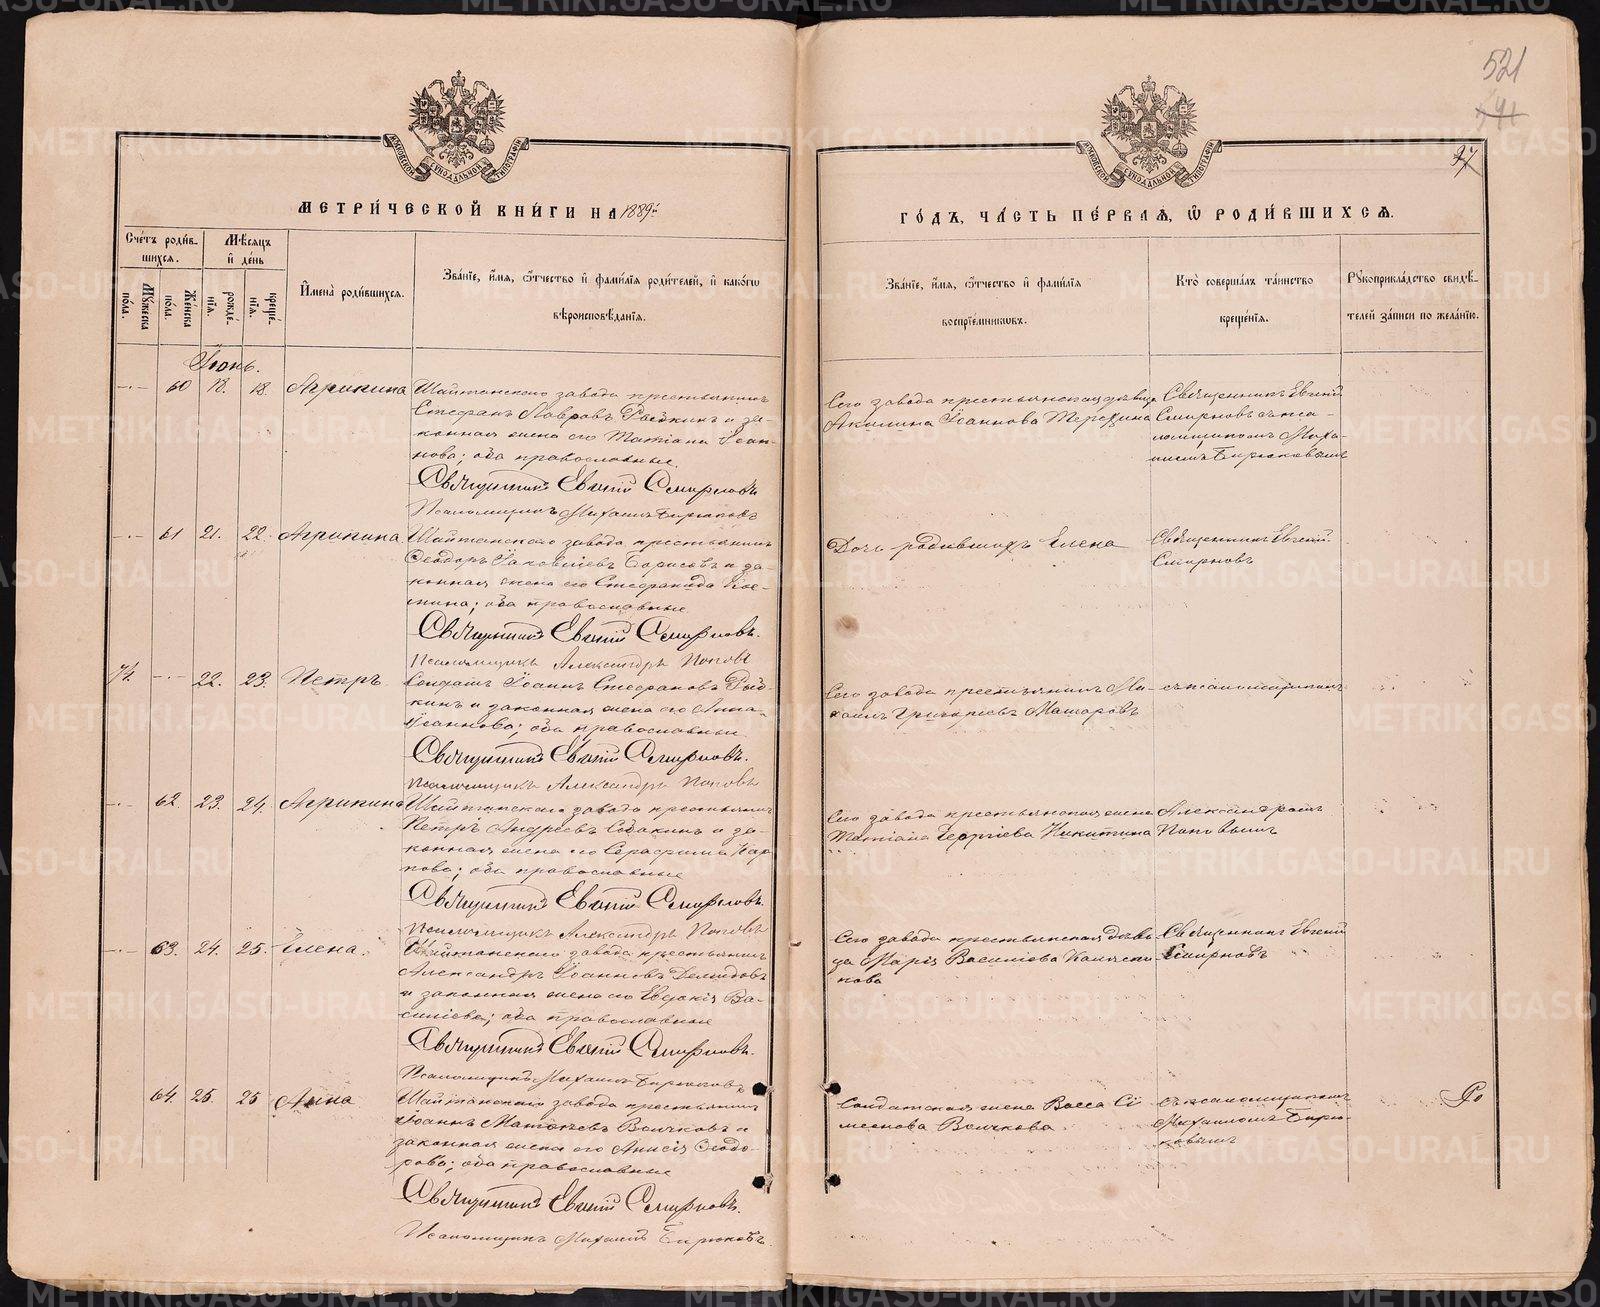 521
37
МОСКОВСКОЙ СѴНОДАЛЬНОЙ ТИПОГРАФІИ
МОСКОВСКОЙ СѴНОДАЛЬНОЙ ТИПОГРАФІИ
МЕТРИ́ЧЕСКОЙ КНИ́ГИ НА 1889й
ГО́ДЪ, ЧА́СТЬ ПЕ́РВАѦ, Ѡ҆ РОДИ́ВШИХСѦ.
Сче́тъ роди́в-
шихсѧ.
Мѣ́сѧцъ
и҆ де́нь
Мꙋ́жеска по́ла.
Же́нска по́ла.
рожде́нїѧ.
креще́нїѧ.
И҆мена̀ роди́вшихсѧ.
Зва́нїе, и҆́мѧ, ѻ҆́тчество и҆ фами́лїѧ роди́телей, и҆ како́гѡ
вѣроисповѣ́данїѧ.
Зва́нїе, и҆́мѧ, ѻ҆́тчество и҆ фами́лїѧ
воспрїе́мникѡвъ.
Кто̀ соверша́лъ та́инство
креще́нїѧ.
Рꙋкоприкла́дство свидѣ́-
телей за́писи по жела́нїю.
Іюнь.
-·- 60 18. 18. Агрипина
Шайтанскаго завода крестьянинъ
Стефанъ Лавровъ Рыбкинъ и за-
конная жена его Татіана Іоан-
нова; оба православные.
Священникъ Евгеній Смирновъ
Псаломщикъ Михаилъ Бирюковъ
Сего завода крестьянская дѣвица
Акилина Іоаннова
Священникъ Евгеній
Смирновъ съ пса-
ломщикомъ Миха-
иломъ Бирюковымъ
-·- 61 21. 22. Агрипина
Шайтанскаго завода крестьянинъ
Ѳеодоръ Іаковлевъ Борисовъ и за-
конная жена его Стефанида
оба православные
Священникъ Евгеній Смирновъ.
Псаломщикъ Александръ Поповъ
Дочь родившихъ Елена
Священникъ Евгеній
Смирновъ
74. -·- 22. 23. Петръ
Солдатъ Іоаннъ Стефановъ Рыб-
кинъ и законная жена его Анна
Іоаннова; оба православные
Священникъ Евгеній Смирновъ.
Псаломщикъ Александръ Поповъ
Сего завода крестьянинъ Ми-
хаилъ Григорьевъ Макаровъ
съ псаломщикомъ
-·- 62. 23. 24. Агрипина
Шайтанскаго завода крестьянинъ
Петръ Андреевъ Собакинъ и за-
конная жена его Серафима Кар-
пова; оба православные
Священникъ Евгеній Смирновъ.
Псаломщикъ Александръ Поповъ
Сего завода крестьянская жена
Татіана Георгіева Никитина
Александромъ
Поповымъ
-·- 63. 24. 25. Елена.
Шайтанскаго завода крестьянинъ
Александръ Іоанновъ Демидовъ
и законная жена его Евдокія Ва-
сильева; оба православные
Священникъ Евгеній Смирновъ.
Псаломщикъ Михаилъ Бирюковъ
Сего завода крестьянская дѣви-
ца Марія Васильева
Священникъ Евгеній
Смирновъ
64. 25. 25 Анна
Шайтанскаго завода крестьянинъ
Іоаннъ Матвѣевъ Волчковъ и
законная жена его Анисія Ѳеодо-
рова; оба православные
Священникъ Евгеній Смирновъ.
Псаломщикъ Михаилъ Бирюковъ.
Солдатская жена Васса Си-
меонова Волчкова
съ псаломщикомъ
Михаиломъ Бирю-
ковымъ
METRIKI.GASO-URAL.RU